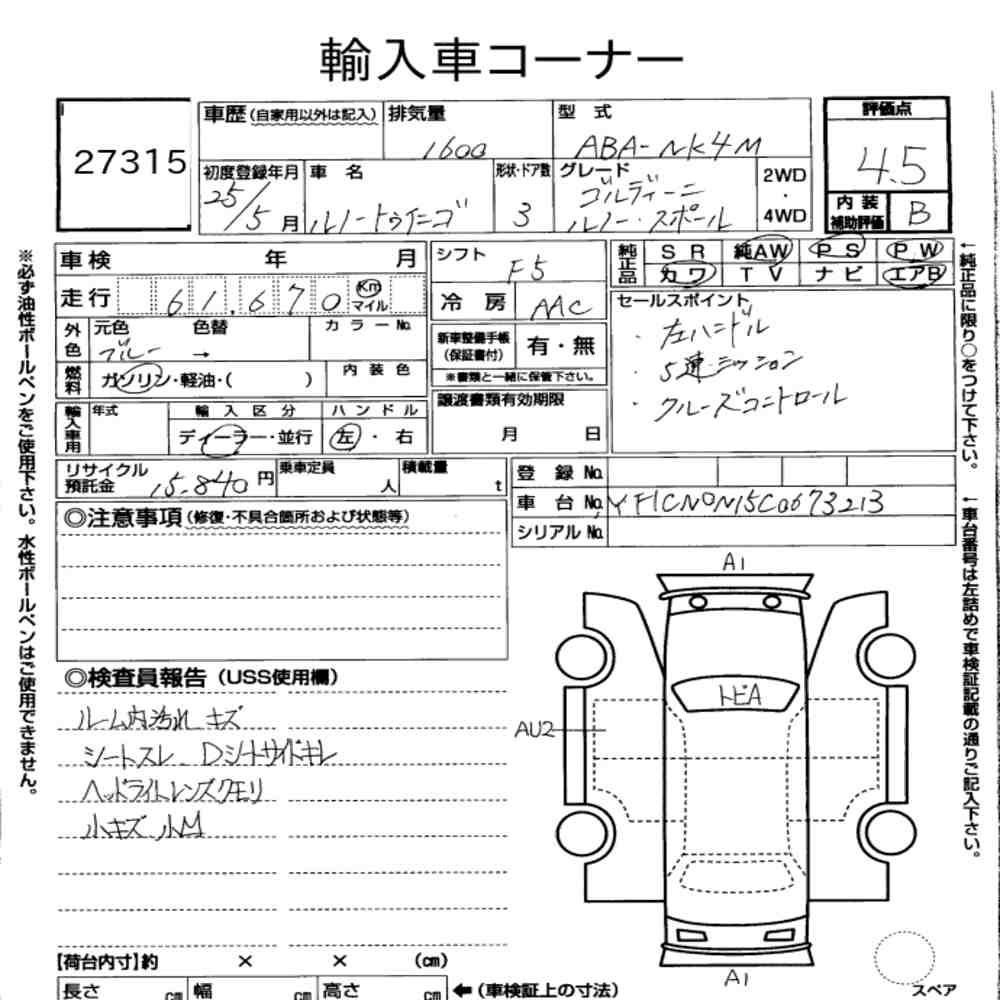 輸入車コーナー
27315
車歴(自家用以外は記入)
排気量
1600
型 式
ABA-NK4M
評価点
4.5
初度登録年月
25/5月
車 名
ルノートゥインゴ
形状・ドア数
3
グレード
ゴルディーニ
ルノー・スポール
2WD
・
4WD
内 装
補助評価
B
車検 年 月
走行 61,670 Km マイル
外色
元色 色替
ブルー →
カラーNo.
燃料
ガソリン・軽油・( )
内 装 色
輸入車用
年式
輸 入 区 分
ディーラー・並行
ハ ン ド ル
左・右
シフト
F5
冷 房
AAC
新車整備手帳
(保証書付)
有・無
※書類と一緒に保管下さい。
譲渡書類有効期限
月 日
純正品
S R 純AW P S P W
カワ T V ナビ エアB
セールスポイント
・左ハンドル
・5速ミッション
・クルーズコントロール
リサイクル
預託金
15,840円
乗車定員
人
積載量
t
登 録 No.
車 台 No. VF1CN0N15C0673213
シリアル No.
◎注意事項(修復・不具合箇所および状態等)
◎検査員報告(USS使用欄)
ルーム内汚れ キズ
シートスレ Dシートサイドキレ
ヘッドライトレンズクモリ
小キズ 小M
A1
トビA
AU2
A1
スペア
【荷台内寸】約 × × (cm)
長さ cm 幅 cm 高さ cm
←(車検証上の寸法)
※必ず油性ボールペンをご使用下さい。水性ボールペンはご使用できません。
←純正品に限り○をつけて下さい。
←車台番号は左詰めで車検証記載の通りご記入下さい。